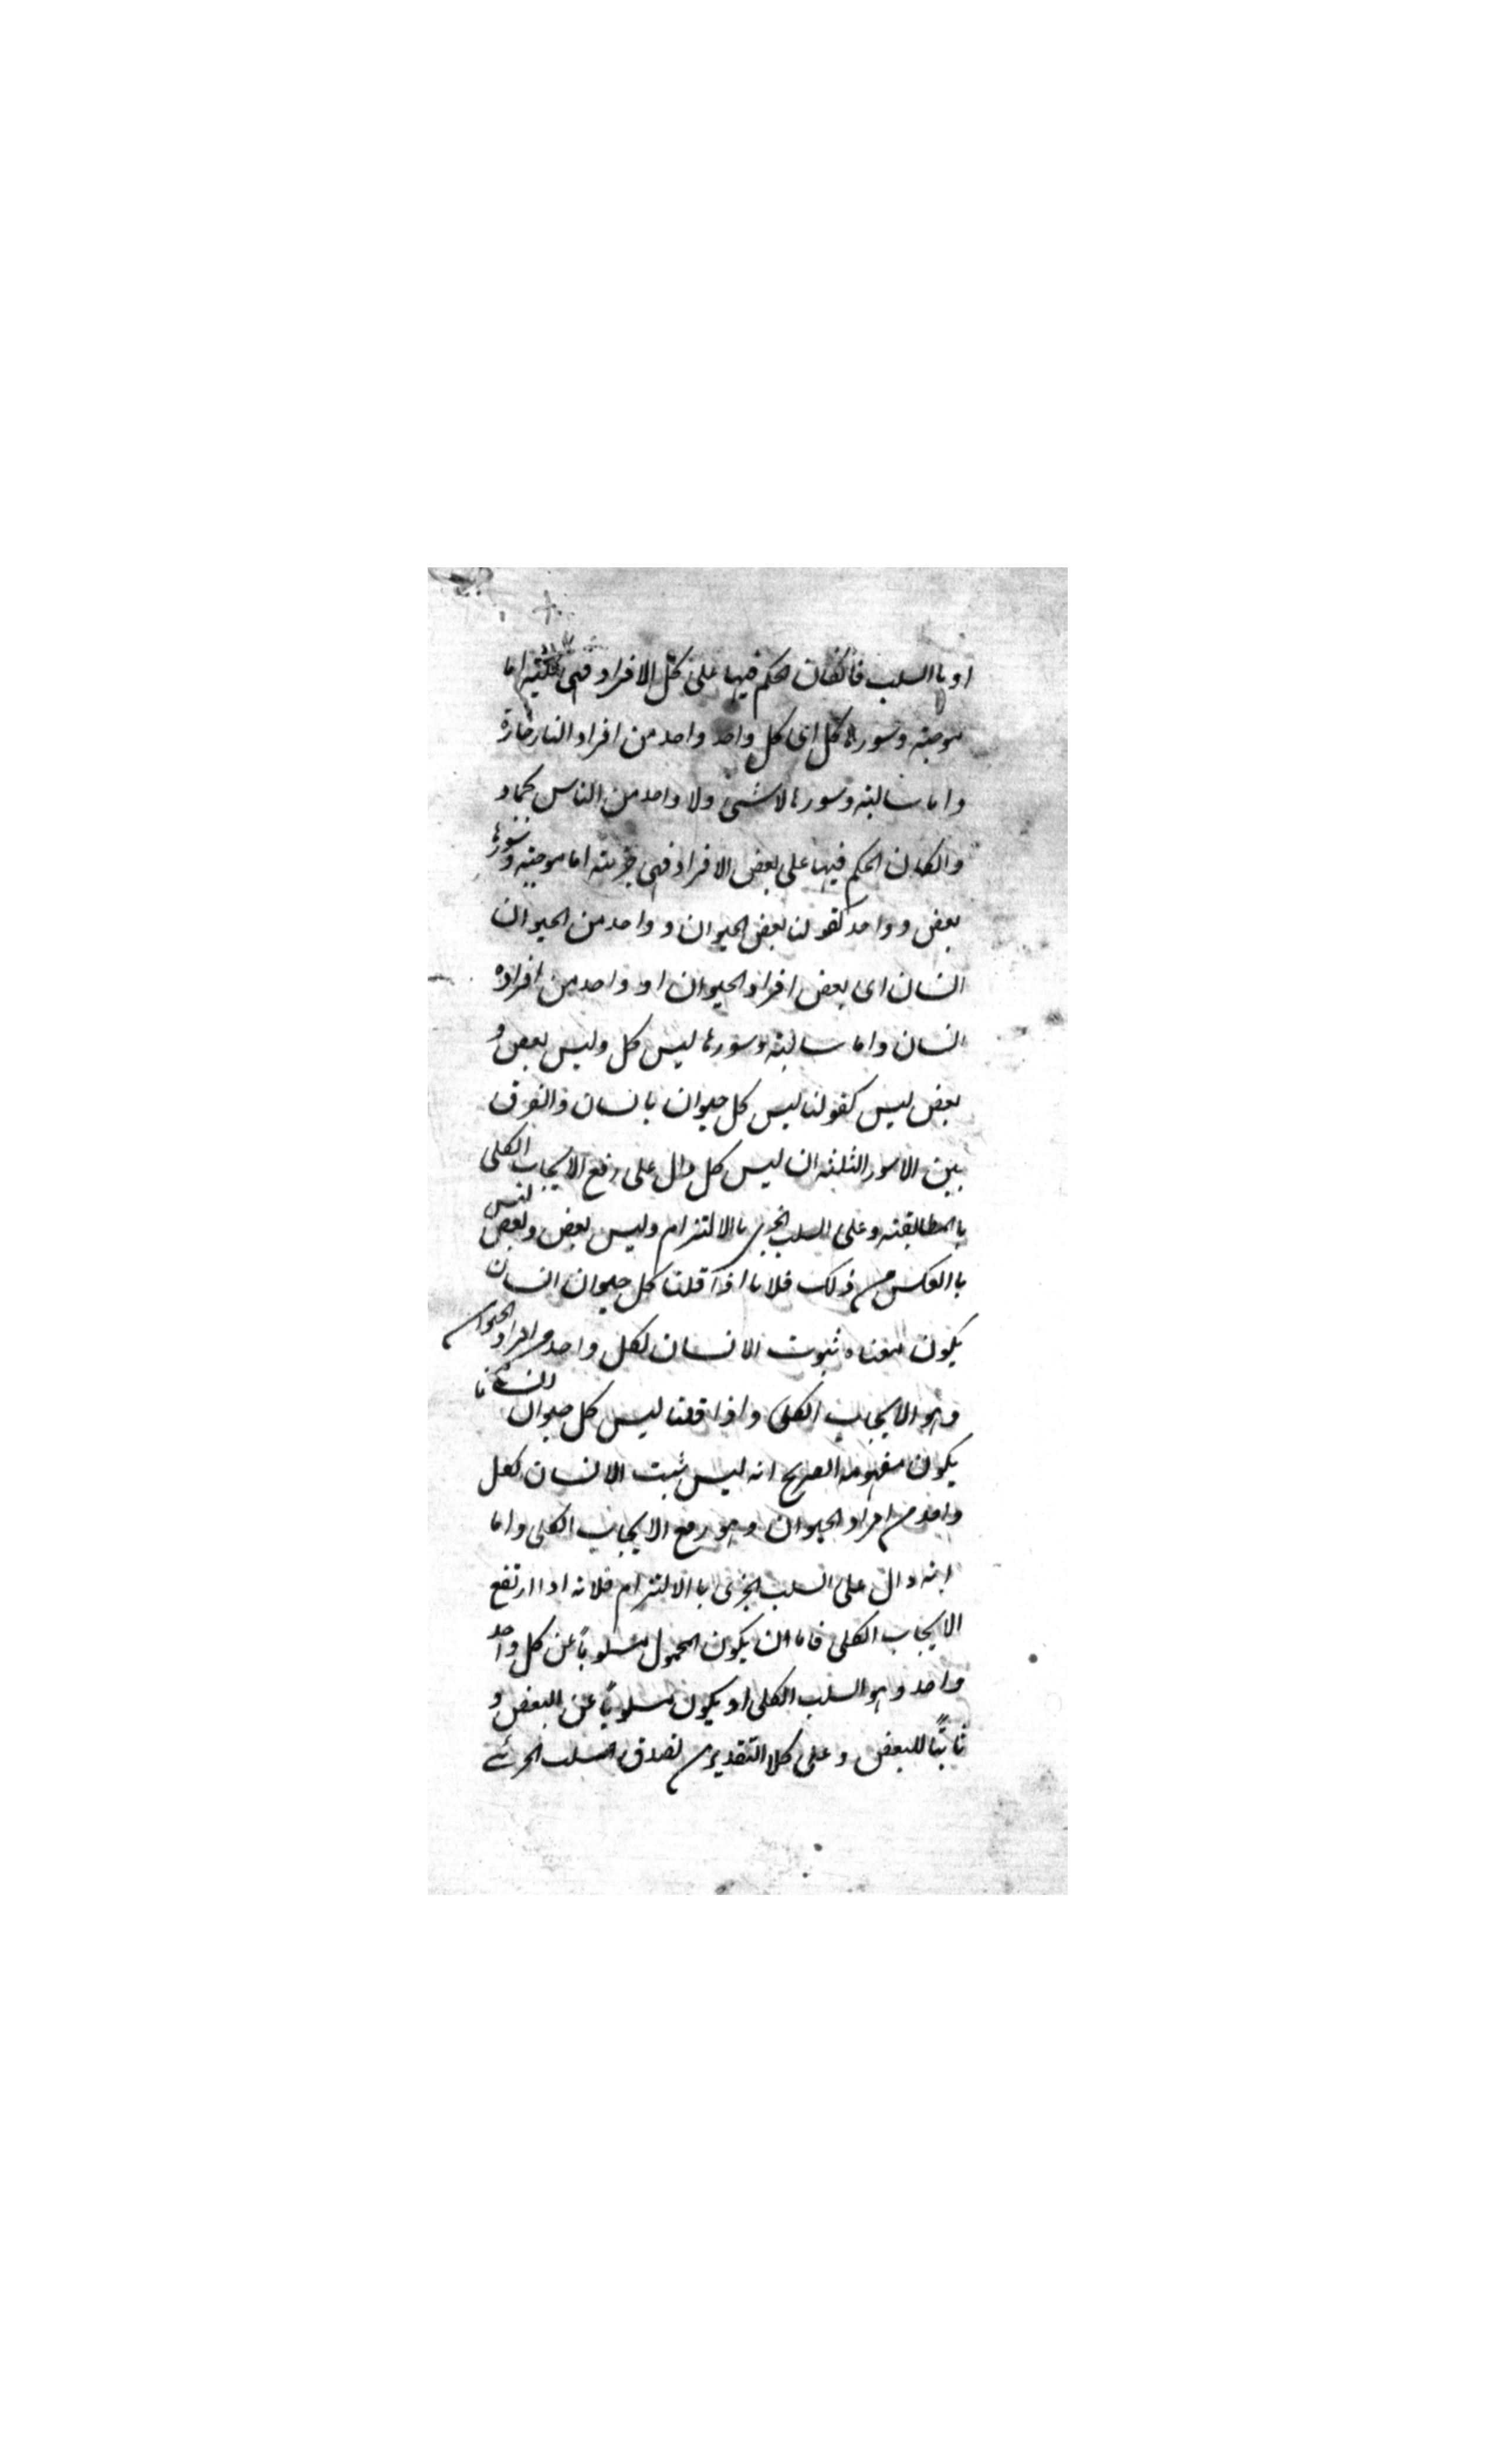 او باالسلب فانكان الحكم فيها على كل الافراد فهى كلية اما
موجبة وسورها كل اى كل واحد واحد من افراد النار حارة
واما سالبة وسورها لا شئ ولا واحد من الناس بجماد
وانكان الحكم فيها على بعض الافراد فهى جزئية اما موجبة وسورها
بعض وواحد كقولنا بعض الحيوان و واحد من الحيوان
انسان اى بعض افراد الحيوان او واحد من افراده
انسان واما سالبة وسورها ليس كل وليس بعض و
بعض ليس كقولنا ليس كل حيوان بانسان والفرق
بين الاسور الثلثة ان ليس كل دال على رفع الايجاب الكلى
باالمطابقة وعلى السلب الجزى باالالتزام وليس بعض وبعض ليس
باالعكس من ذلك فلانا اذا قلنا كل حيوان انسان
يكون معناه ثبوت الانسان لكل واحد من افراد الحيوان
وهو الايجاب الكلى واذا قلنا ليس كل حيوان انسانا
يكون مفهومه الصريح انه ليس ثبت الانسان لكل
واحد من افراد الحيوان وهو رفع الايجاب الكلى واما
انه دال على السلب الجزى باالالتزام فلانه اذا ارتفع
الايجاب الكلى فاما ان يكون المحمول مسلوباً عن كل واحد
واحد وهو السلب الكلى او يكون مسلوباً عن البعض و
ثابتاً للبعض وعلى كلا التقديرين يصدق السلب الجزئى